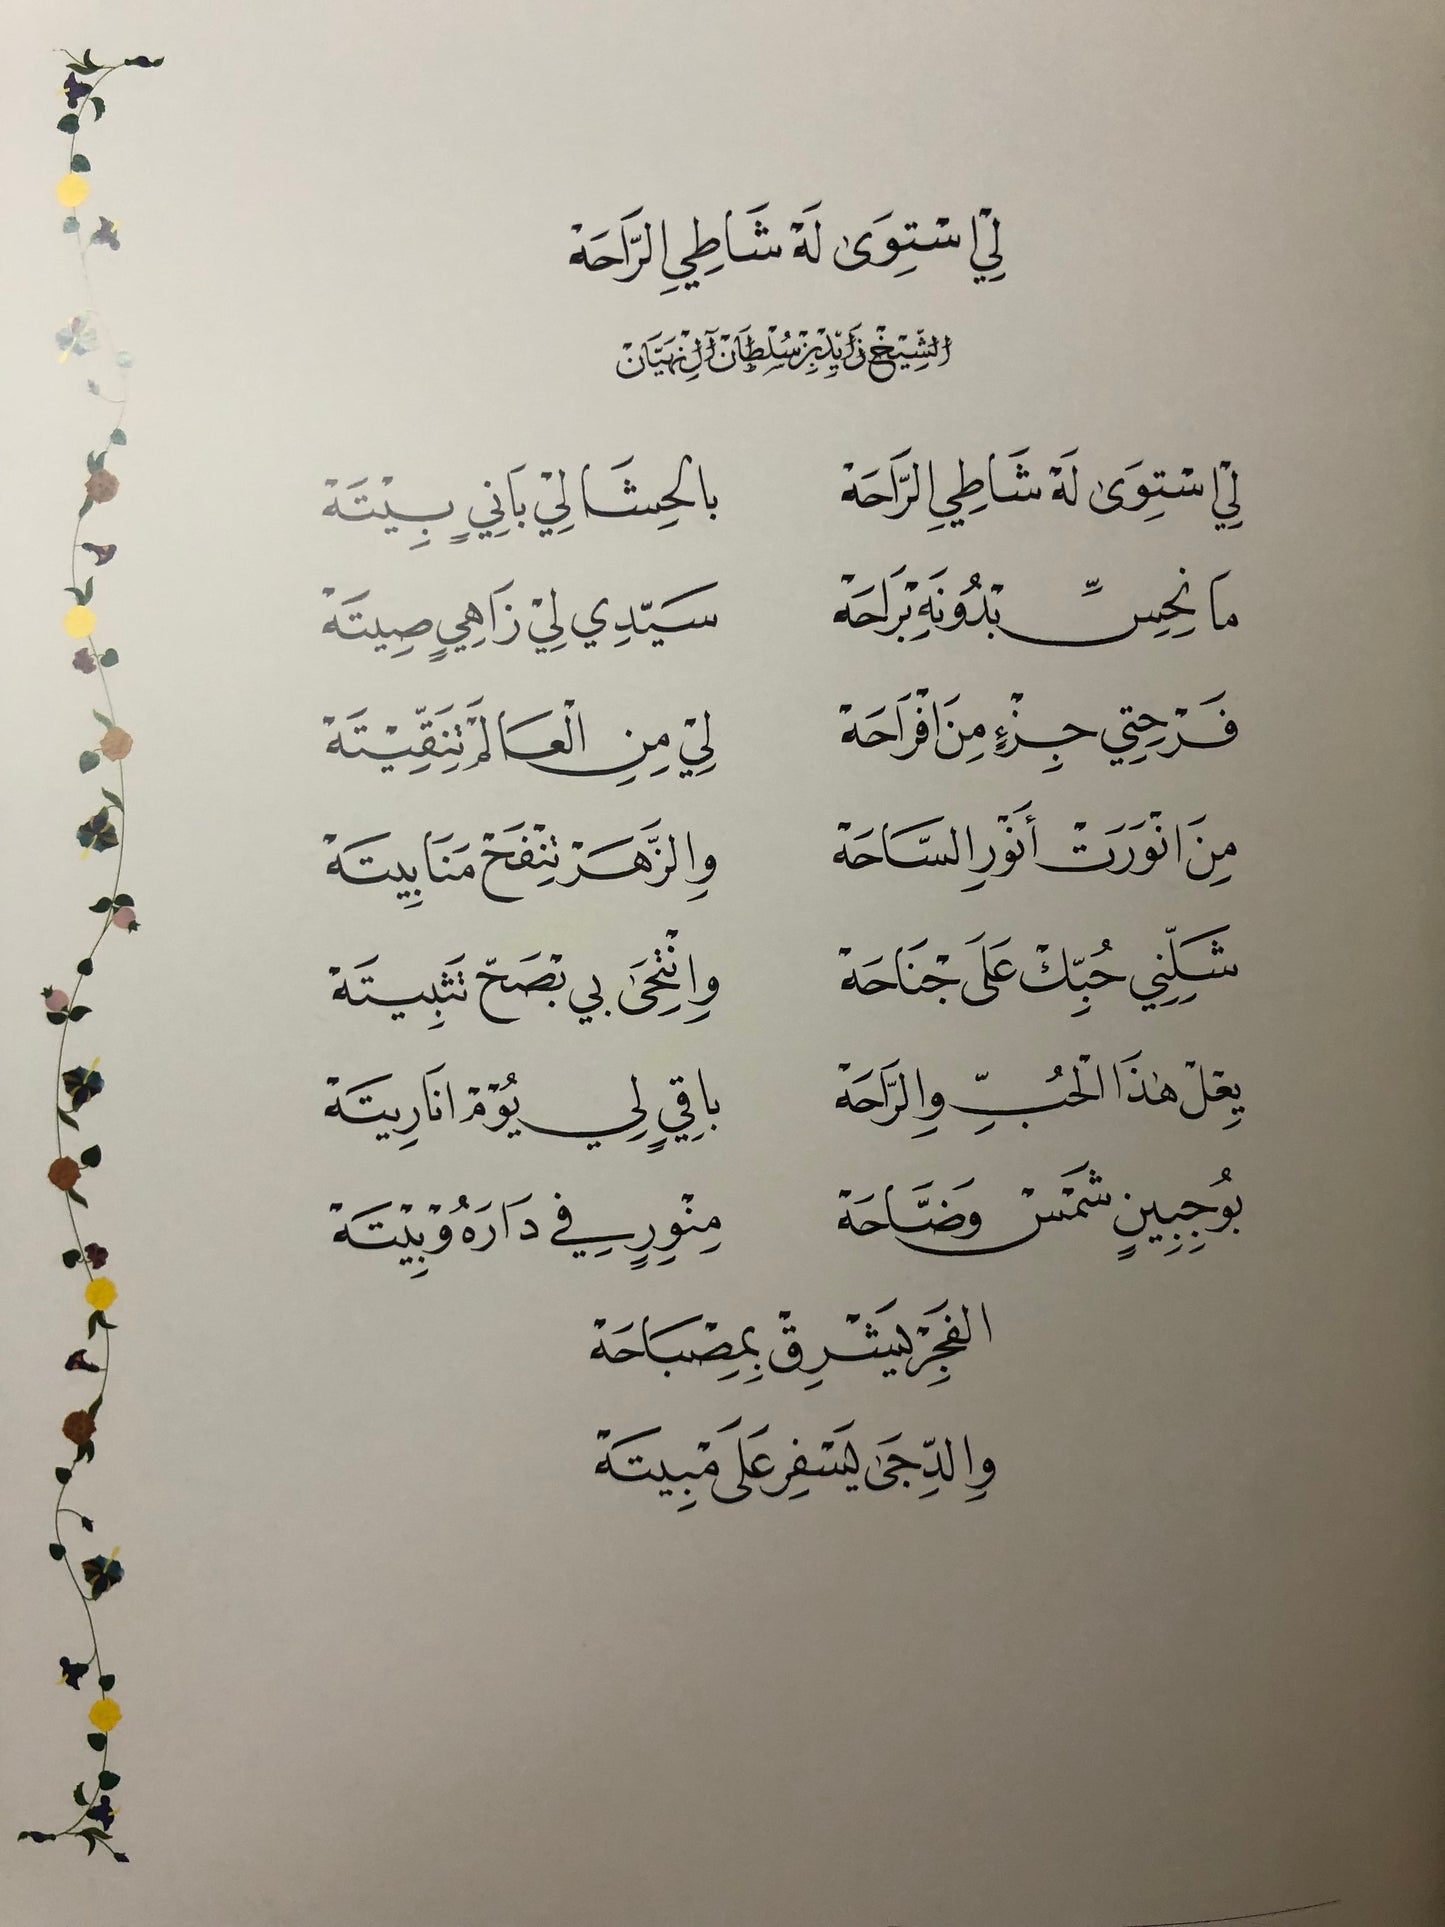 لِيْ اسْتِوَىٰ لَهْ شَاطِيِ الرَّاحَهْ
الشِّيْخْ زَايِدْ بِنْ سُلْطَانْ آلْ نِهَيَّانْ
لِيْ اسْتِوَىٰ لَهْ شَاطِيِ الرَّاحَهْ بالحِشَا لِيْ بَانيٍ بِيْتَهْ
مَا نِحِسِّ بْدُونَهِ بْرَاحَهْ سَيِّدِي لِيْ زَاهِيٍ صِيتَهْ
فَرْحِتِي جِزْءٍ مِنَ افْرَاحَهْ لِيْ مِنِ الْعَالَمْ تِنَقِّيْتَهْ
مِنَ انْوَرَتْ أَنْوَرِ السَّاحَهْ وِالزَّهَرْ تِنْفَحْ مَنَابِيتَهْ
شَلِّنِي حُبِّكْ عَلَىَ جْنَاحَهْ وِانْتِحَىٰ بي بْصَحّ تَثْبِيتَهْ
يِعْلْ هٰذَا الْحُبِّ وِالرَّاحَهْ باقِيٍ لِي يُوْمْ انَا رِيتَهْ
بُوجِبِينٍ شَمْسْ وَضَّاحَهْ مِنْوِرٍ فِي دَارَهُ وْبِيْتَهْ
الفَجِرْ يَشْرِقْ بِمِصْبَاحَهْ
وِالدِّجَىٰ يَسْفِرْ عَلَىَ مْبِيتَهْ